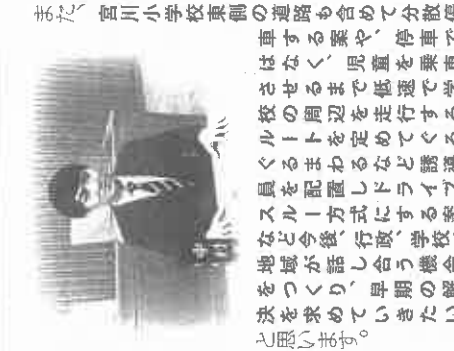 また、宮川小学校東側の道路も含めて分散停
車する案や、停車で
はなく、児童を乗車
させるまで低速で学
校の周辺を走行する
ルートを定めてぐる
ぐるまわるなど誘導
員を配置しドライブ
スルー方式にする案
など今後、行政、学校、
地域が話し合う機会
をつくり、早期の解
決を求めていきたい
と思います。